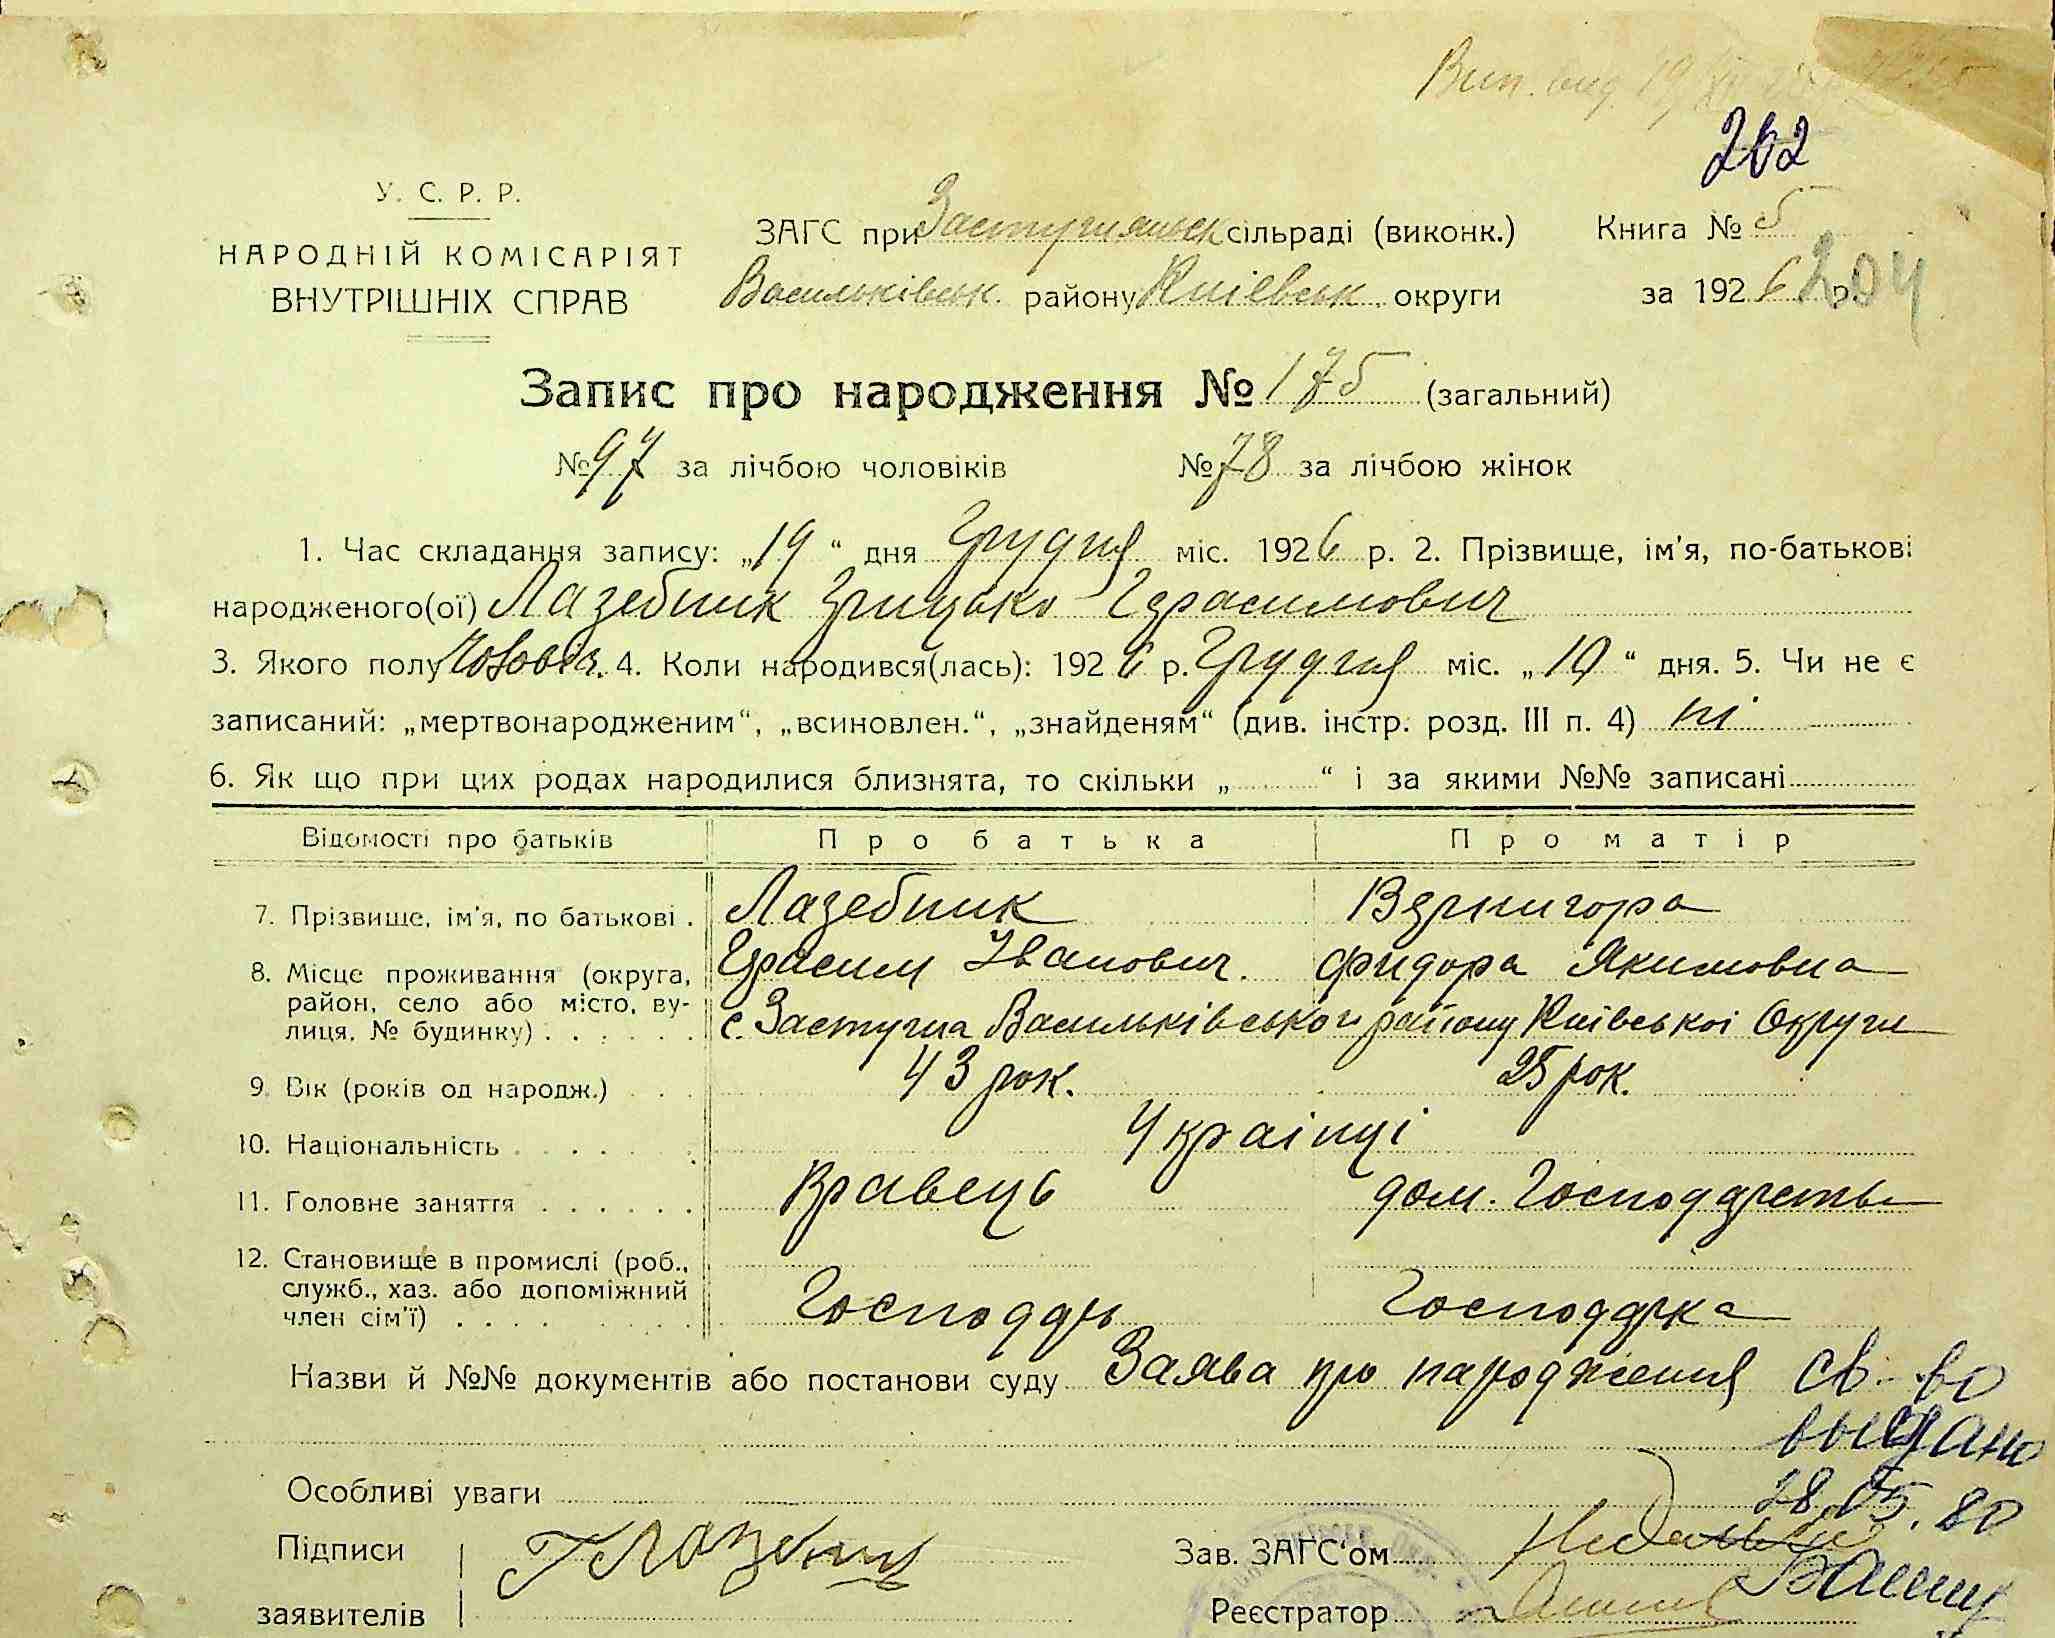 Вип. вид. 19
202
У. С. Р. Р.
НАРОДНІЙ КОМІСАРІЯТ
ВНУТРІШНІХ СПРАВ
ЗАГС при Застугнянськ сільраді (виконк.) Книга № 5
Васильківськ. району Київськ. округи за 1926 р. 204
Запис про народження № 175 (загальний)
№ 97 за лічбою чоловіків № 78 за лічбою жінок
1. Час складання запису: „19“ дня Грудня міс. 1926 р. 2. Прізвище, ім'я, по-батькові
народженого(ої) Лазебник Грицько Герасимович
3. Якого полу Чоловіч. 4. Коли народився(лась): 1926 р. Грудня міс. „10“ дня. 5. Чи не є
записаний: „мертвонародженим“, „всиновлен.“, „знайденям“ (див. інстр. розд. III п. 4) ні
6. Як що при цих родах народилися близнята, то скільки „ “ і за якими №№ записані
Відомості про батьків Про батька Про матір
7. Прізвище, ім'я, по батькові . Лазебник Вернигора
Герасим Іванович. Фидора Якимовна
8. Місце проживання (округа,
район, село або місто, ву-
лиця, № будинку) . . . . . . с. Застугна Васильківського району Київської Округи
9. Вік (років од народж.) . . . 43 рок. 25 рок.
10. Національність . . . . . . Українці
11. Головне заняття . . . . . . Кравець дом. Господарств
12. Становище в промислі (роб.,
служб., хаз. або допоміжний
член сім'ї) . . . . . . . . Господар Господарка
Назви й №№ документів або постанови суду Заява про народження св-во
выдано
Особливі уваги 28.05.80
Підписи Г Лазебник Зав. ЗАГС'ом
заявителів Реєстратор